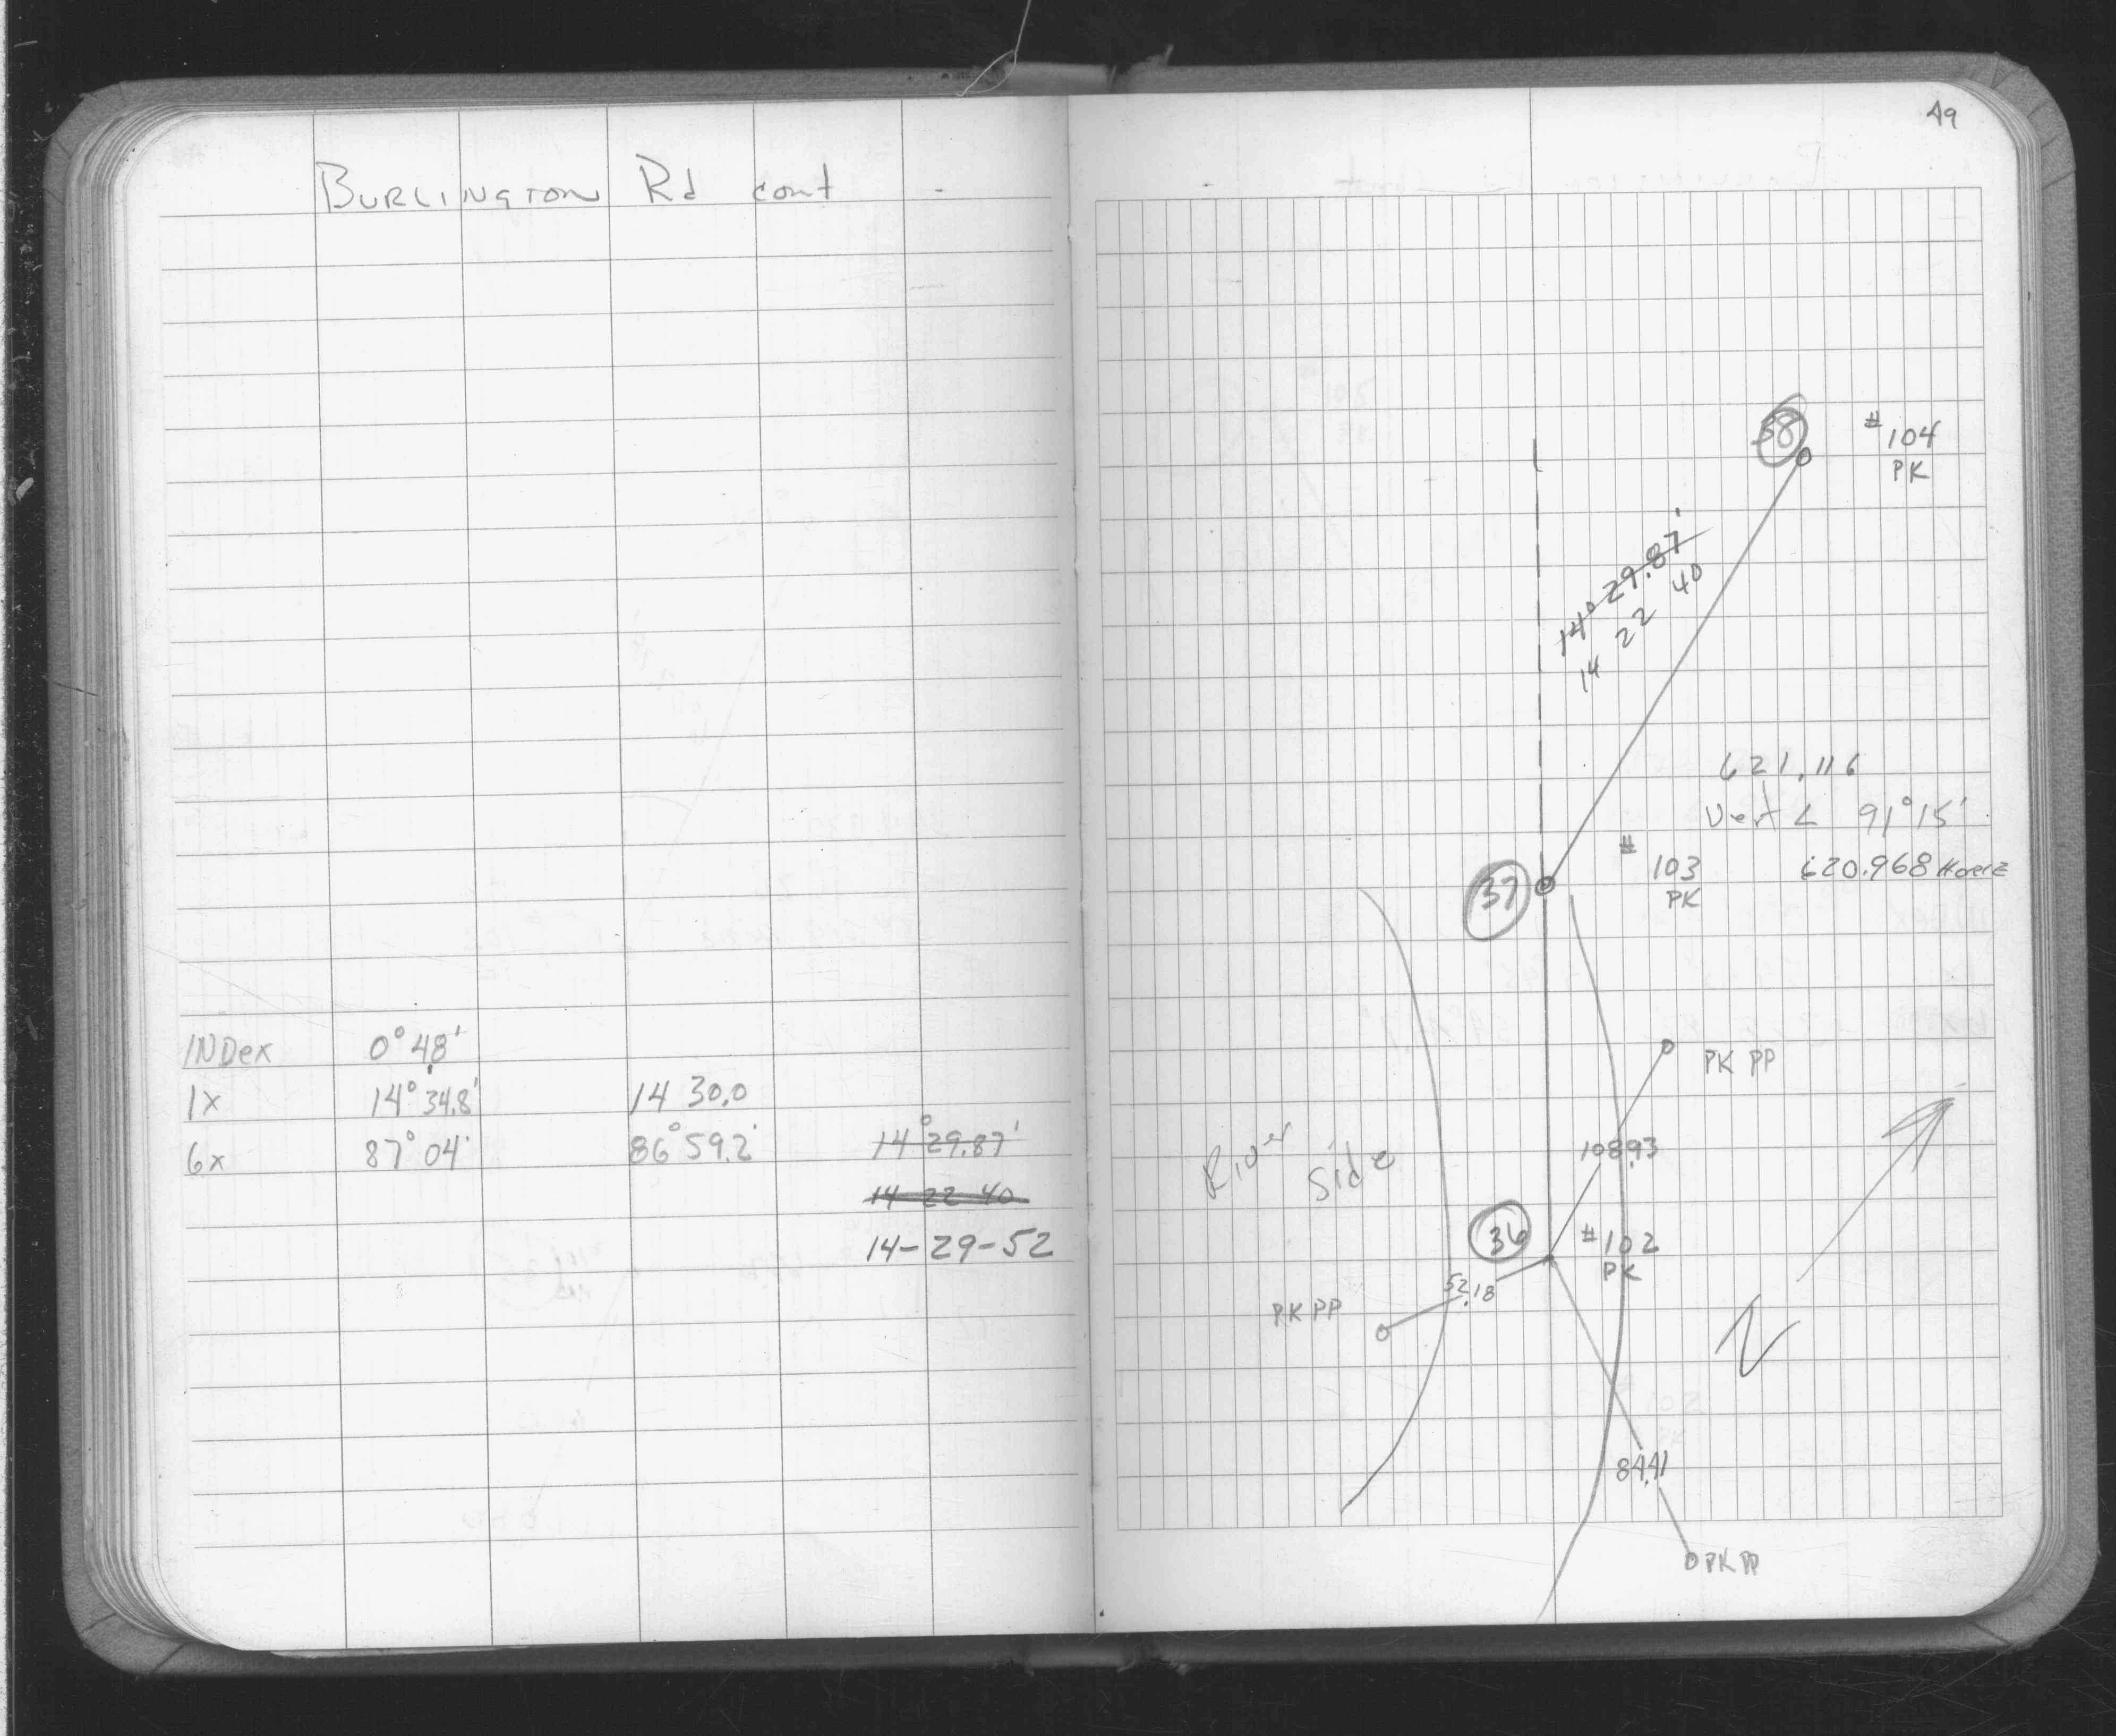 BURLINGTON Rd cont
INDex 0° 48'
1x 14° 34.8' 14 30.0
6x 87° 04' 86° 59.2' 14° 29.87'
14 22 40
14-29-52
49
38
# 104
PK
14° 29.87'
14 22 40
621.116
Vert ∠ 91° 15'
# 103
PK
620.968 Horiz
37
PK PP
108.93
River Side
36
# 102
PK
52.18
PK PP
N
84.41
PK PP